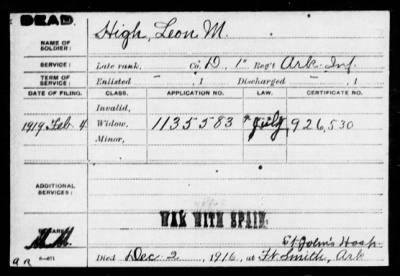 DEAD.
NAME OF SOLDIER: High, Leon M.
SERVICE: Late rank, Co. D, 1" Reg't Ark. Inf.
TERM OF SERVICE: Enlisted , 1 Discharged , 1
DATE OF FILING. CLASS. APPLICATION NO. LAW. CERTIFICATE NO.
Invalid,
1919 Feb 4 Widow, 1135583 July 926,530
Minor,
ADDITIONAL SERVICES:
WAR WITH SPAIN.
REMARKS:
St John's Hosp.
Died Dec 2, 1916, at Ft. Smith, Ark